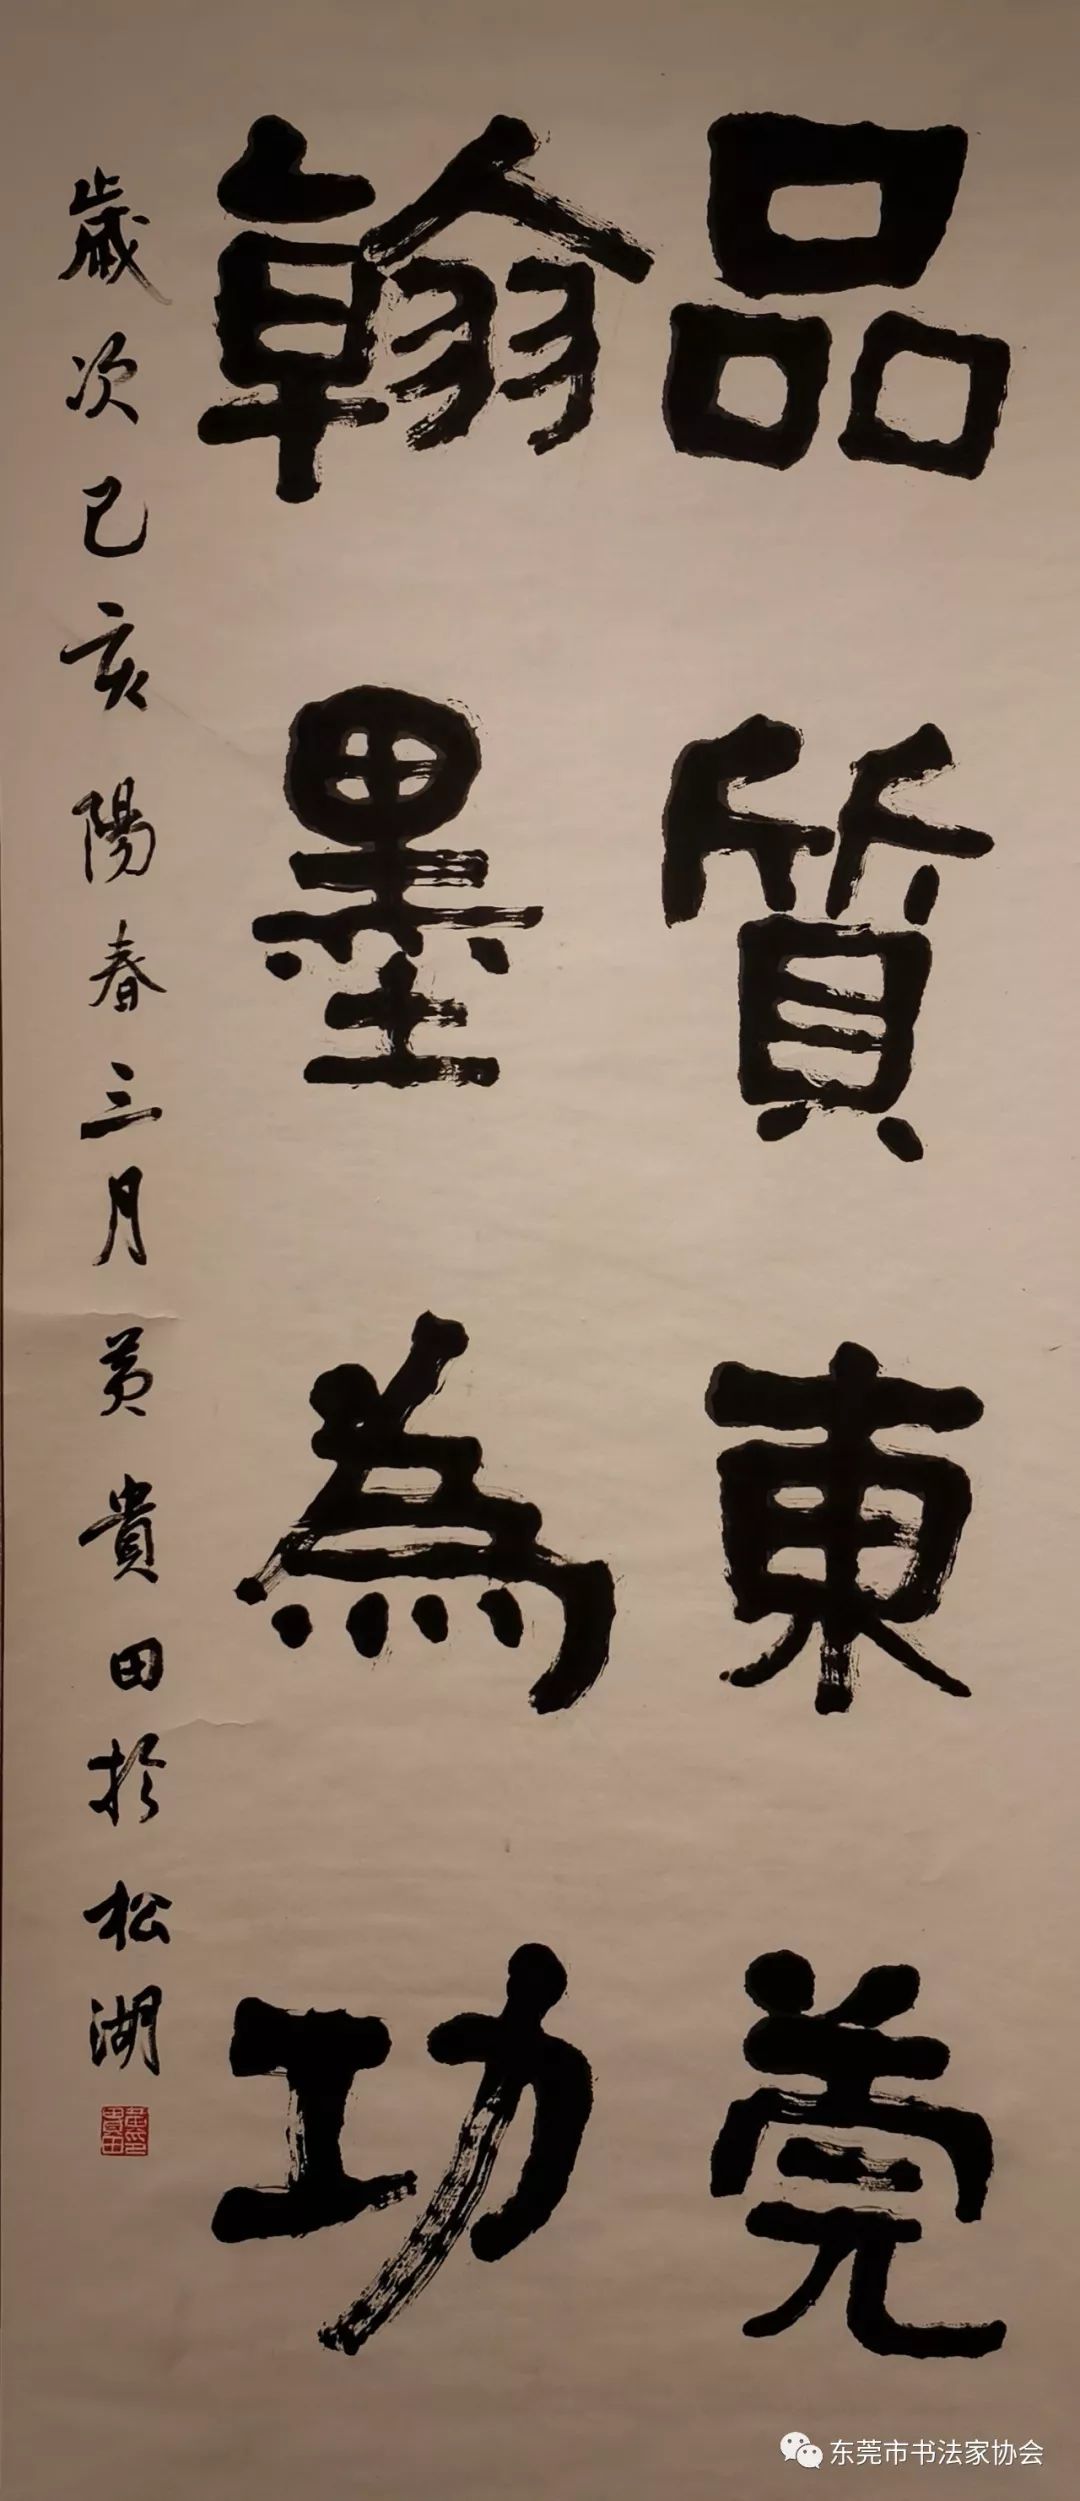 品質東莞
翰墨為功
歲次己亥陽春三月黃貴田於松湖
东莞市书法家协会